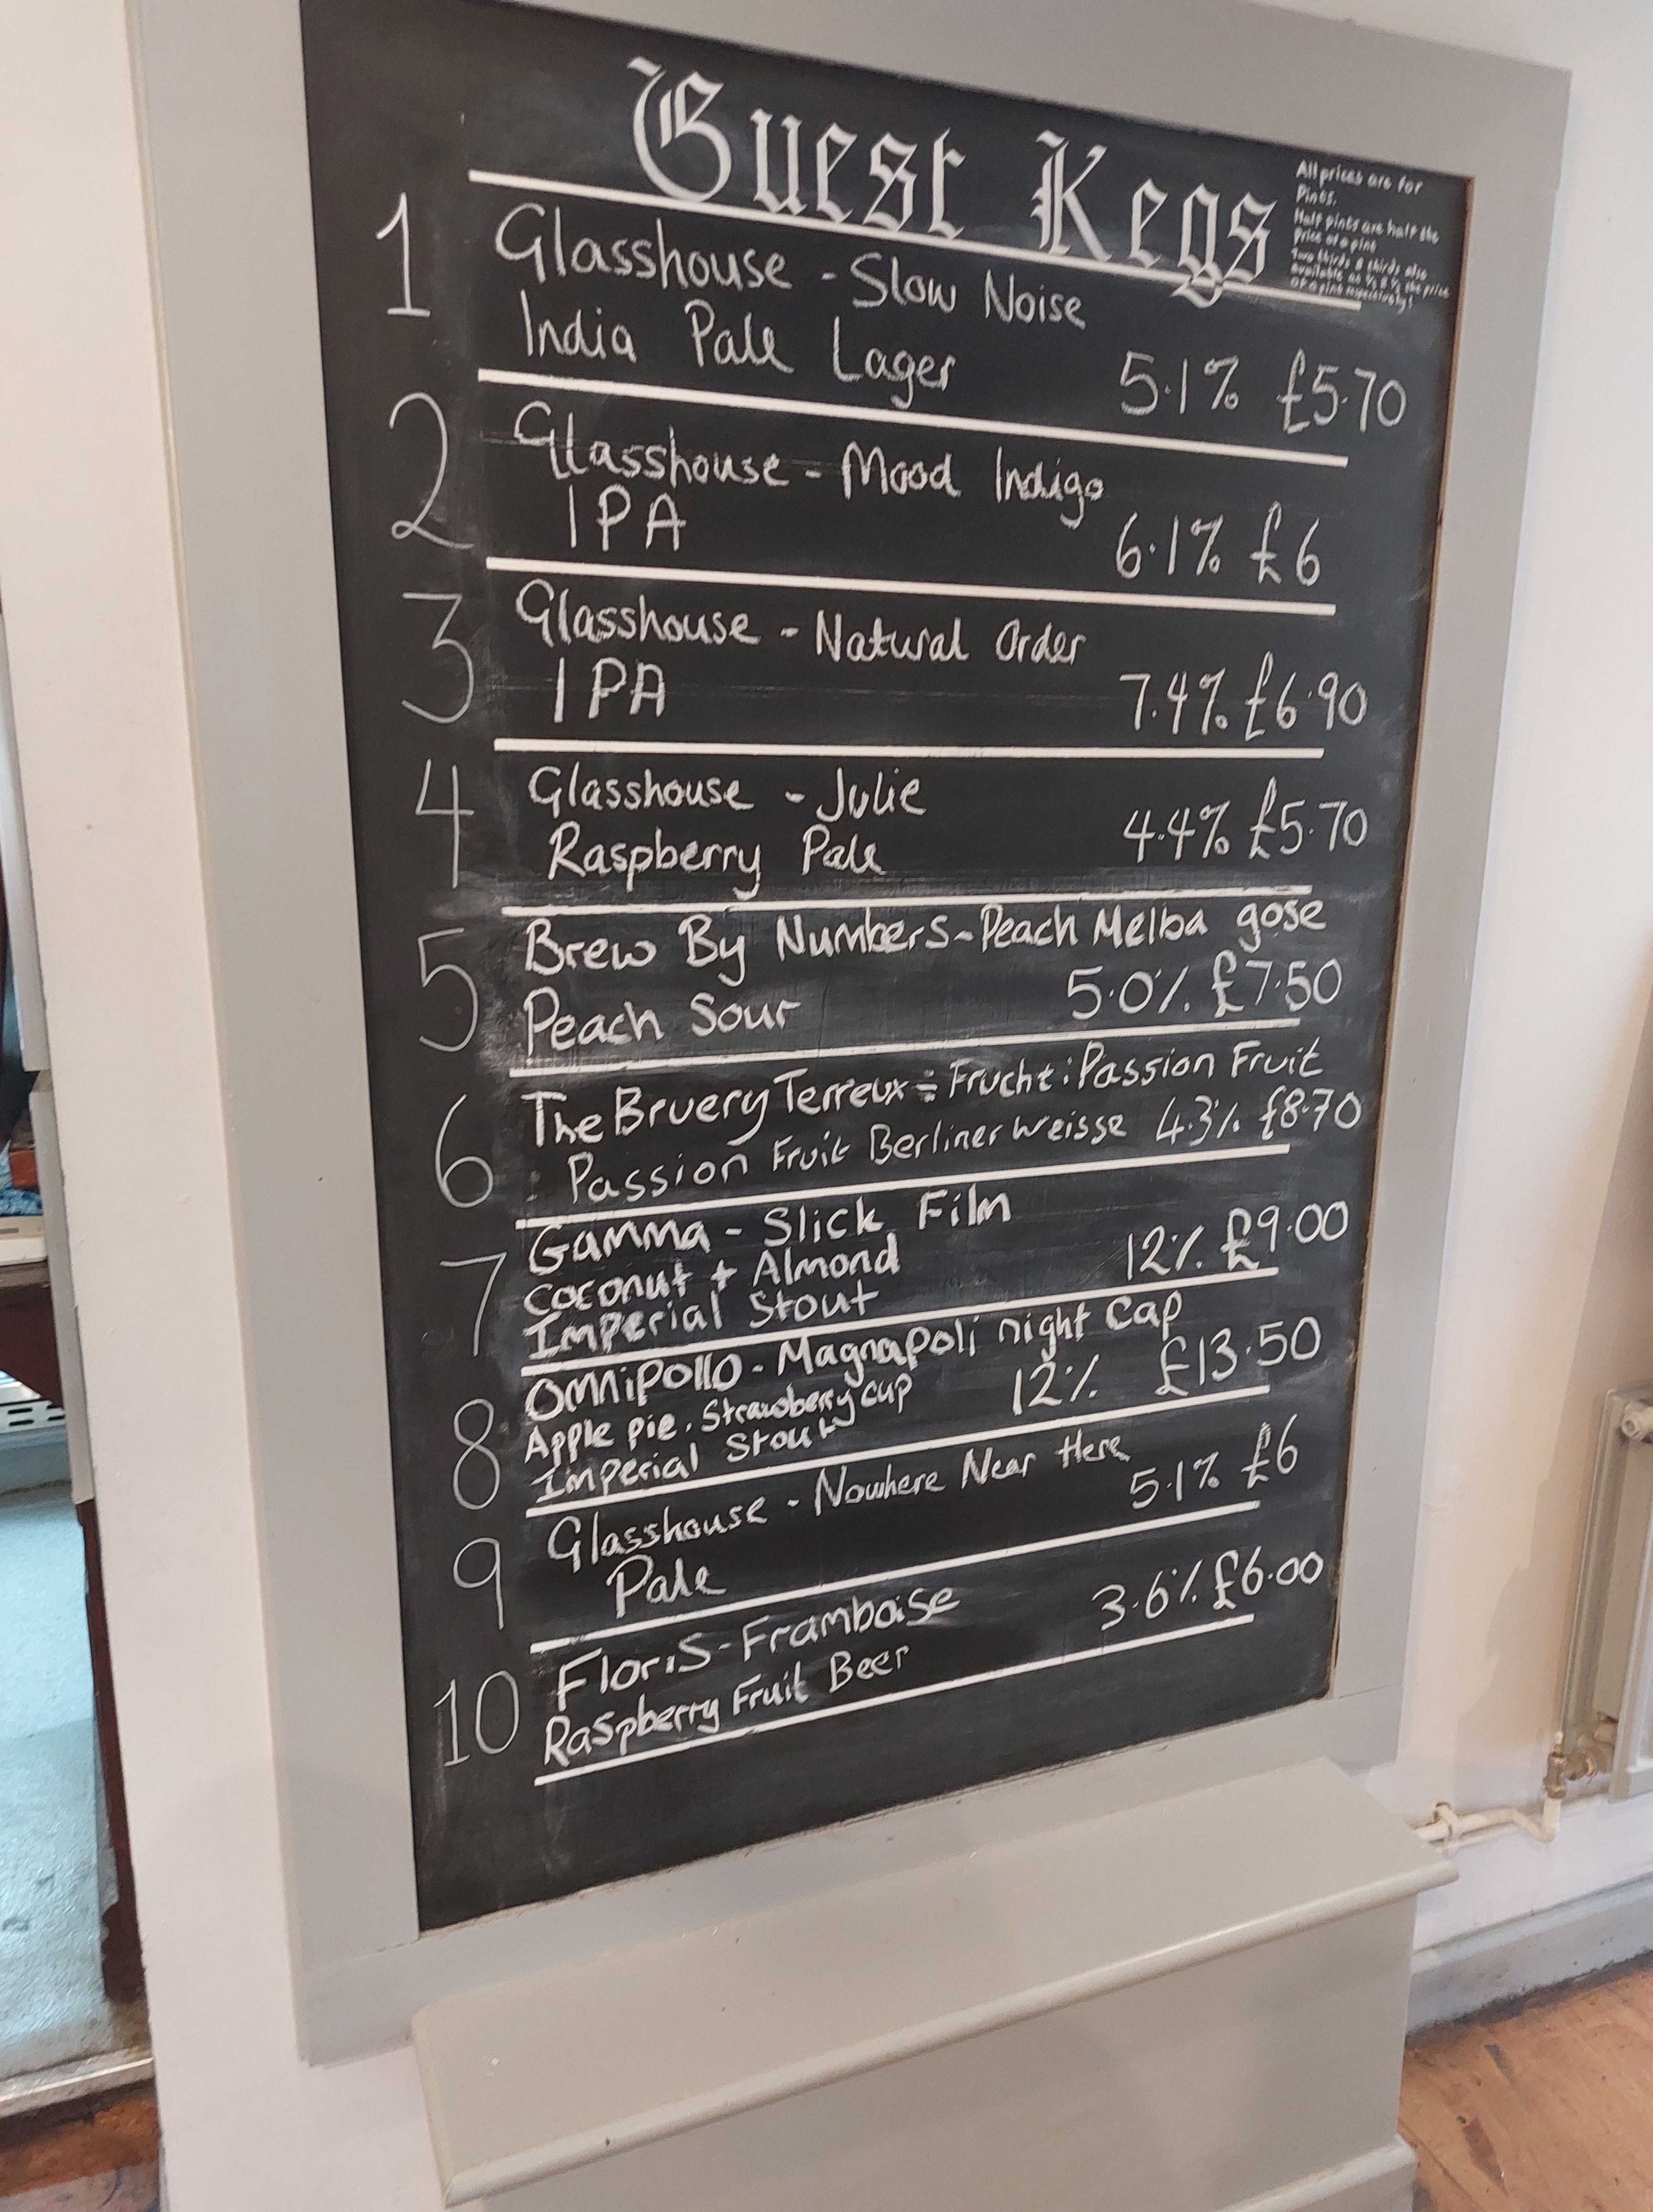 Guest Kegs
All prices are for
Pints.
Half pints are half the
price of a pint
Two thirds & thirds also
available at ⅔ & ⅓ the price
of a pint respectively!
1 Glasshouse - Slow Noise
India Pale Lager 5.1% £5.70
2 Glasshouse - Mood Indigo
IPA 6.1% £6
3 Glasshouse - Natural Order
IPA 7.4% £6.90
4 Glasshouse - Julie
Raspberry Pale 4.4% £5.70
5 Brew By Numbers - Peach Melba gose
Peach Sour 5.0% £7.50
6 The Bruery Terreux - Frucht: Passion Fruit
Passion Fruit Berliner Weisse 4.3% £8.70
7 Gamma - Slick Film
Coconut + Almond 12% £9.00
Imperial Stout
8 Omnipollo - Magnapoli night cap
Apple pie, Strawberry cup 12% £13.50
Imperial Stout
9 Glasshouse - Nowhere Near Here
Pale 5.1% £6
10 Floris - Framboise 3.6% £6.00
Raspberry Fruit Beer